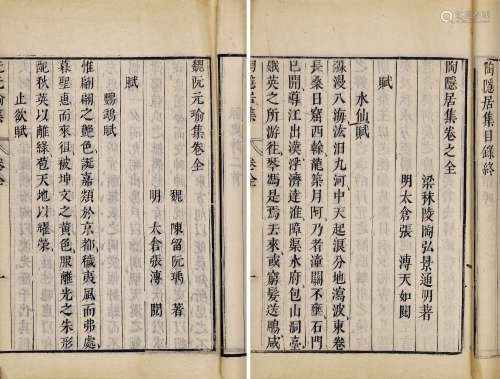 陶隱居集目錄終
陶隱居集卷之全
梁秣陵陶弘景通明著
明太倉張溥天如閱
賦
水仙賦
淼漫八海汯汩九河中天起浪分地瀉波東卷
長桑日窟西斡龍築月阿乃者潼關不壅石門
已開導江出漢浮濟達淮漳渠水府包山洞臺
娥英之所游往琴馮是焉去來或窮髮送鵬咸
陶隱居集
卷全
魏阮元瑜集卷全
魏 陳留阮瑀 著
明 太倉張溥 閱
賦
鸚鵡賦
惟翩翩之艶鳥誕嘉類於京都穢夷風而弗處
慕聖惠而來徂被坤文之黃色服離光之朱形
配秋英以離綠苞天地以耀榮
止欲賦
阮元瑜集
卷全